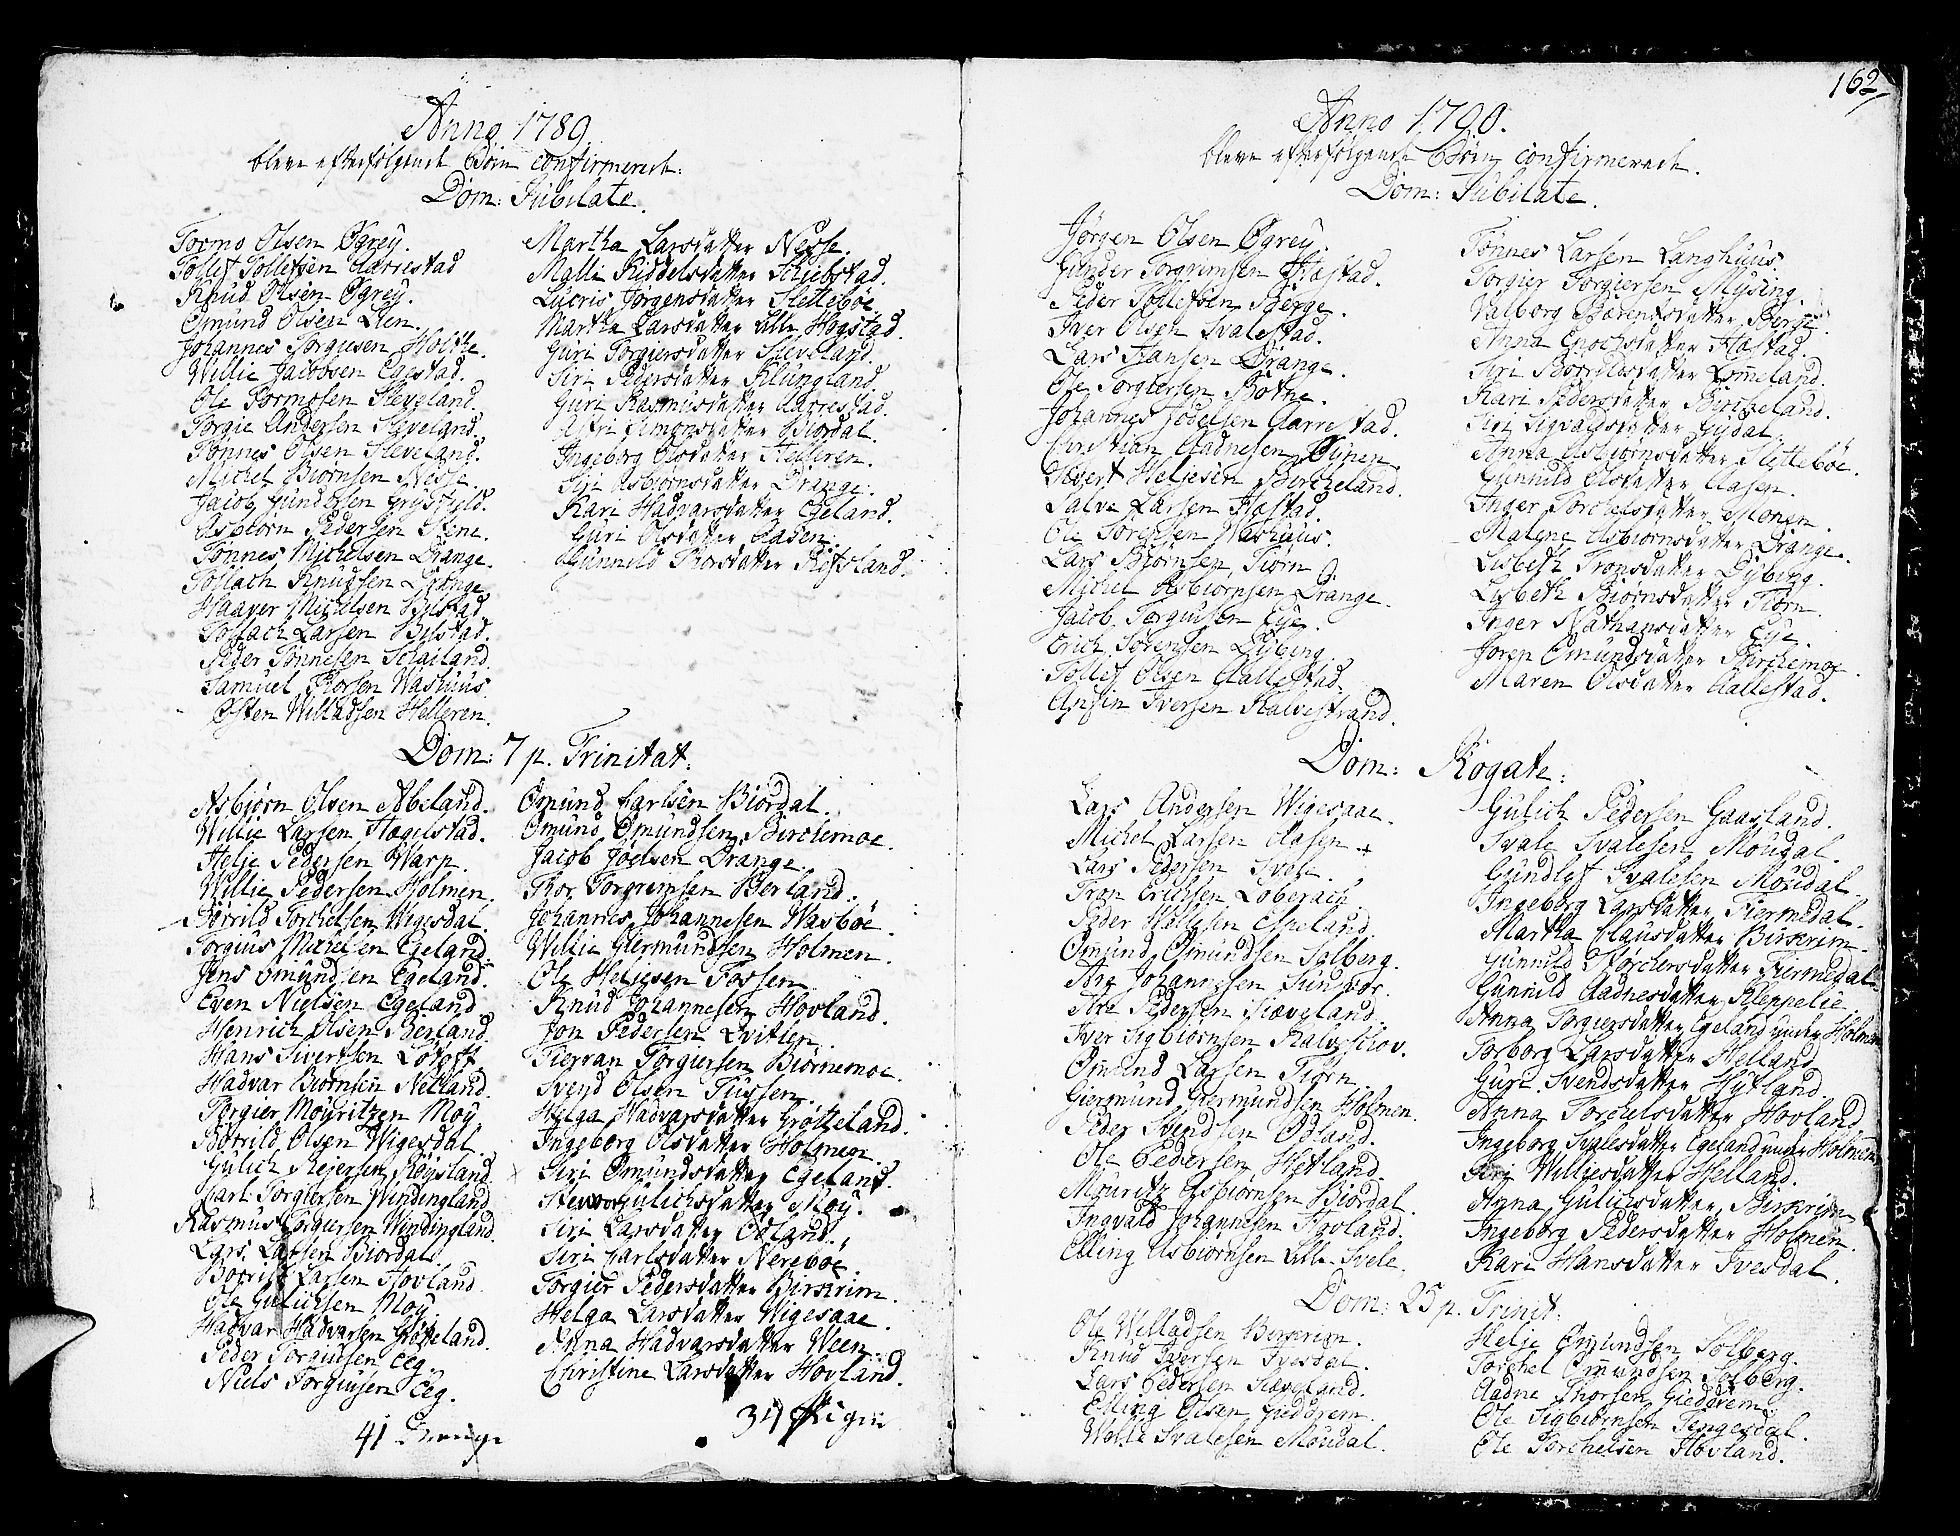 162
Anno 1789
bleve efterfølgende Börn confirmerede:
Dom: Jubilate.
Tormo Olsen Øgrey.
Tollef Tollefsen Aarrestad
Knud Olsen Øgrey.
Omund Olsen Lien.
Johannes Torgiusen
Willie Jacobsen Egestad.
Ole Tormosen Sleveland.
Torgie Andersen Sleveland.
Tönnes Olsen Sleveland.
Michel Biörnsen Nesse.
Jacob Gundersen
Asbiörn Pedersen Stene.
Tönnes Michelsen Drange.
Tollach Knudsen Drange
Haaver Michelsen Bilstad
Tollach Larsen Bilstad.
Peder Tönnesen
Samuel Thorsen Washuus.
Østen Willadsen Helleren.
Martha Larsdatter Nesse.
Malli Kiddelsdatter Skiebstad.
Lucris Jörgensdatter Slettebøe
Martha Larsdatter Lille Hogstad.
Guri Torgiersdatter Sleveland.
Siri Pedersdatter Klungland.
Guri Rasmusdatter Aarrestad.
Astri Simonsdatter Biordal.
Ingeborg Olsdatter Helleren.
Siri Asbiornsdatter Drange.
Kari Hadvarsdatter Egeland.
Guri Olsdatter Aasen.
Gunnild Thorsdatter Röfsland.
Dom: 7 p. Trinitat:
Asbjörn Olsen Abeland.
Willie Larsen Hægelstad.
Helje Pedersen Warp
Willie Pedersen Holmen.
Börrild Torchelsen Wigesdal.
Torgius Michelsen Egeland.
Jens Omundsen Egeland.
Even Nielsen Egeland
Henrich Olsen Berland.
Hans Sivertsen Lotoft.
Hadvar Biörnsen Netland.
Torgier Mouritzen Moy
Börrild Olsen Wigesdal.
Gulich Reiersen Röysland
Carl Torgiersen Windingland
Rasmus Torgiersen Windingland.
Lars Larsen Biordal.
Börrild Larsen Hovland.
Ole Gulichsen Moy.
Hadvar Hadvarsen Gröteland.
Peder Torgiusen Eeg.
Niels Torgiusen Eeg.
41 Drenge
Omund Carlsen Biordal.
Omund Omundsen Birchemoe.
Jacob Joelsen Drange.
Thor Torgrimsen Berland.
Johannes Johannesen Wasböe.
Willie Giermundsen Holmen.
Ole Heljesen Fossen
Knud Johannesen Hovland.
Jon Pedersen Qvitlen.
Tieran Torgiersen Biörnemoe.
Svend Olsen Tussen.
Helga Hadvarsdatter Grötteland.
Ingeborg Olsdatter Holmen.
Siri Omundsdatter Egeland.
Gulichsdatter Moy.
Siri Larsdatter Odland.
Siri Carlsdatter Nereböe.
Torgier Pedersdatter Birkrim.
Helga Larsdatter Wigesaae.
Anna Hadvarsdatter Ween.
Christine Larsdatter Hovland.
Piger
Anno 1790.
bleve efterfølgende Börn confirmerede.
Dom: Jubilate.
Jörgen Olsen Øgrey.
Gunder Torgrimsen Hæstad.
Peder Tollefsen Berge.
Iver Olsen Svalestad.
Lars Hansen Drange.
Ole Torgiersen Botne.
Johannes Jodelsen Aarrestad.
Christian Aadnesen
Sivert Heljesen Bircheland.
Salve Larsen Hæstad.
Ole Sörensen Washuus.
Lars Biörnsen Tiörn
Michel Asbiörnsen Drange.
Jacob Torgiusen Eye.
Erich Sörensen Dÿbing.
Tollef Olsen Aallestad.
Anfin Iversen Kalvestrand.
Tönnes Larsen Langhuus.
Torgier Torgiersen Mÿsing.
Valborg Berentsdatter Berge.
Anna Enochsdatter Hæstad.
Siri Börrildsdatter Lomeland.
Kari Pedersdatter Bircheland.
Siri Sigvaldsdatter Gydal.
Anna Asbiörnsdatter Slettebøe.
Gunnild Olsdatter Aasen.
Inger Torchelsdatter Monen.
Malene Asbiörnsdatter Drange.
Lisbeth Tronsdatter Dÿbing.
Lisbeth Biörnsdatter Tiörn.
Inger Nathansdatter Eye.
Joren Omundsdatter Birchemoe.
Maren Olsdatter Aallestad.
Dom: Rogate:
Lars Andersen Wigesaae.
Michel Larsen Aasen.
Lars Pedersen Svele.
Tron Erichsen Loberach.
Peder Hallesen Espeland.
Omund Osmundsen Solberg.
Are Johannesen Sundvor.
Are Pedersen Sæveland.
Iver Sigbiörnsen Kalveskov.
Omund Larsen Tiörn
Giermund Giermundsen Holmen.
Peder Svendsen Odland.
Ole Pedersen Hetland.
Mouritz Asbiörnsen Biordal.
Ingvald Johannesen Hovland.
Elling Asbiörnsen Lille Svele.
Gulich Pedersen Gaasland.
Svale Svalesen Moudal.
Gundlef Svalesen Moudal.
Ingeborg Larsdatter Tiermedal.
Martha Clausdatter Birkrim.
Gunnild Thorchersdatter Tiermedal.
Gunnild Aadnesdatter Kleppelie.
Anna Torgiersdatter Egeland under Holmen
Torborg Larsdatter Helland
Guri Svendsdatter Hytland.
Anna Torchelsdatter Hovland
Ingeborg Svalesdatter Egeland under Holmen
Siri Williesdatter Helland.
Anna Gulichsdatter Birkrim
Ingeborg Pedersdatter Holmen.
Kari Hansdatter Ivesdal.
Dom: 25 p. Trinit:
Ole Willadsen Birkrim.
Knud Iversen Ivesdal.
Lars Pedersen Sæveland.
Elling Olsen Giedrem.
Wolle Svalesen Moudal.
Helje Omundsen Solberg.
Torchel Omundsen Solberg.
Aadne Thorsen Giedrem.
Ole Sigbiörnsen Tengesdal.
Ole Torchelsen Hovland.